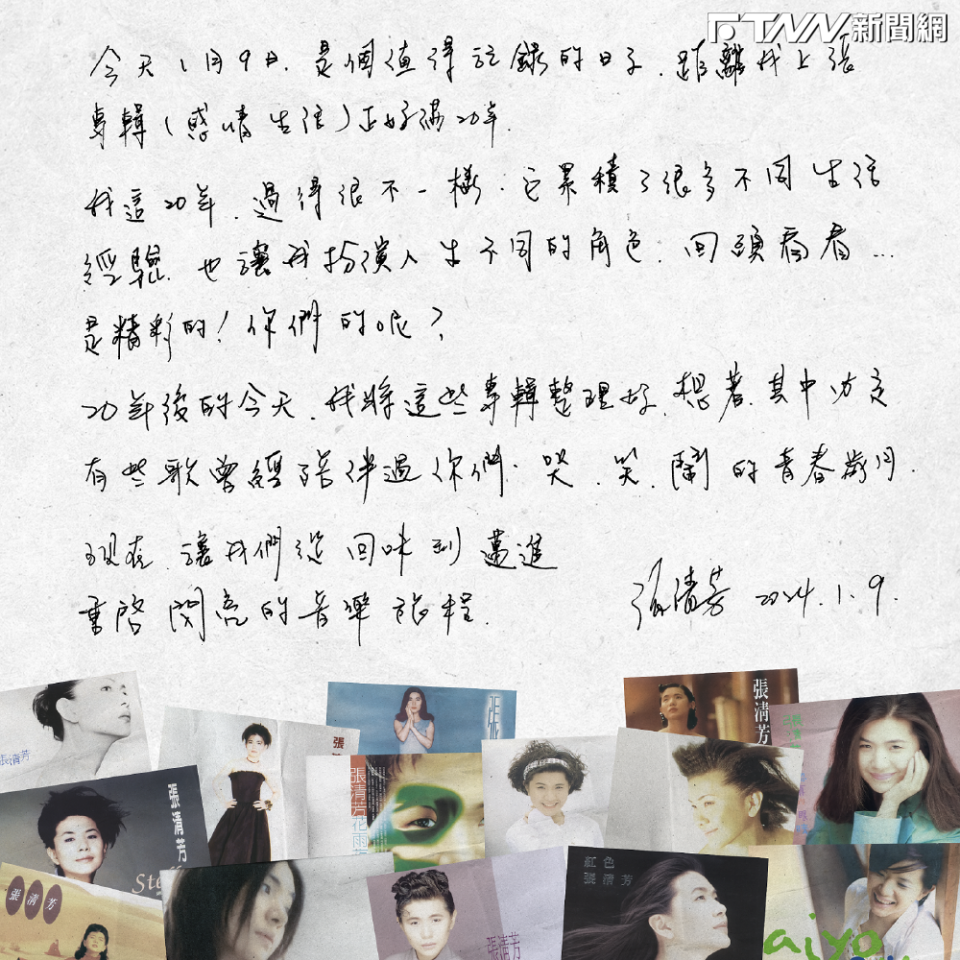 FTNN新聞網
今天1月9日．是個值得註錄的日子．距離我上張
專輯（感情生活）正好滿20年．
我這20年．過得很不一樣．它累積了很多不同生活
經驗．也讓我扮演人生不同的角色．回頭看看...
是精彩的！你們的呢？
20年後的今天．我將這些專輯整理好．想著．其中
有些歌曾經陪伴過你們．哭．笑．鬧的青春歲月．
現在．讓我們從回味到邁進
重啓閃亮的音樂旅程．
張清芳 2024.1.9.
張清芳
張
張清芳
張清芳
張清芳
Ste
張清芳花雨
張清芳
張清芳
紅色
張清芳
aiyo